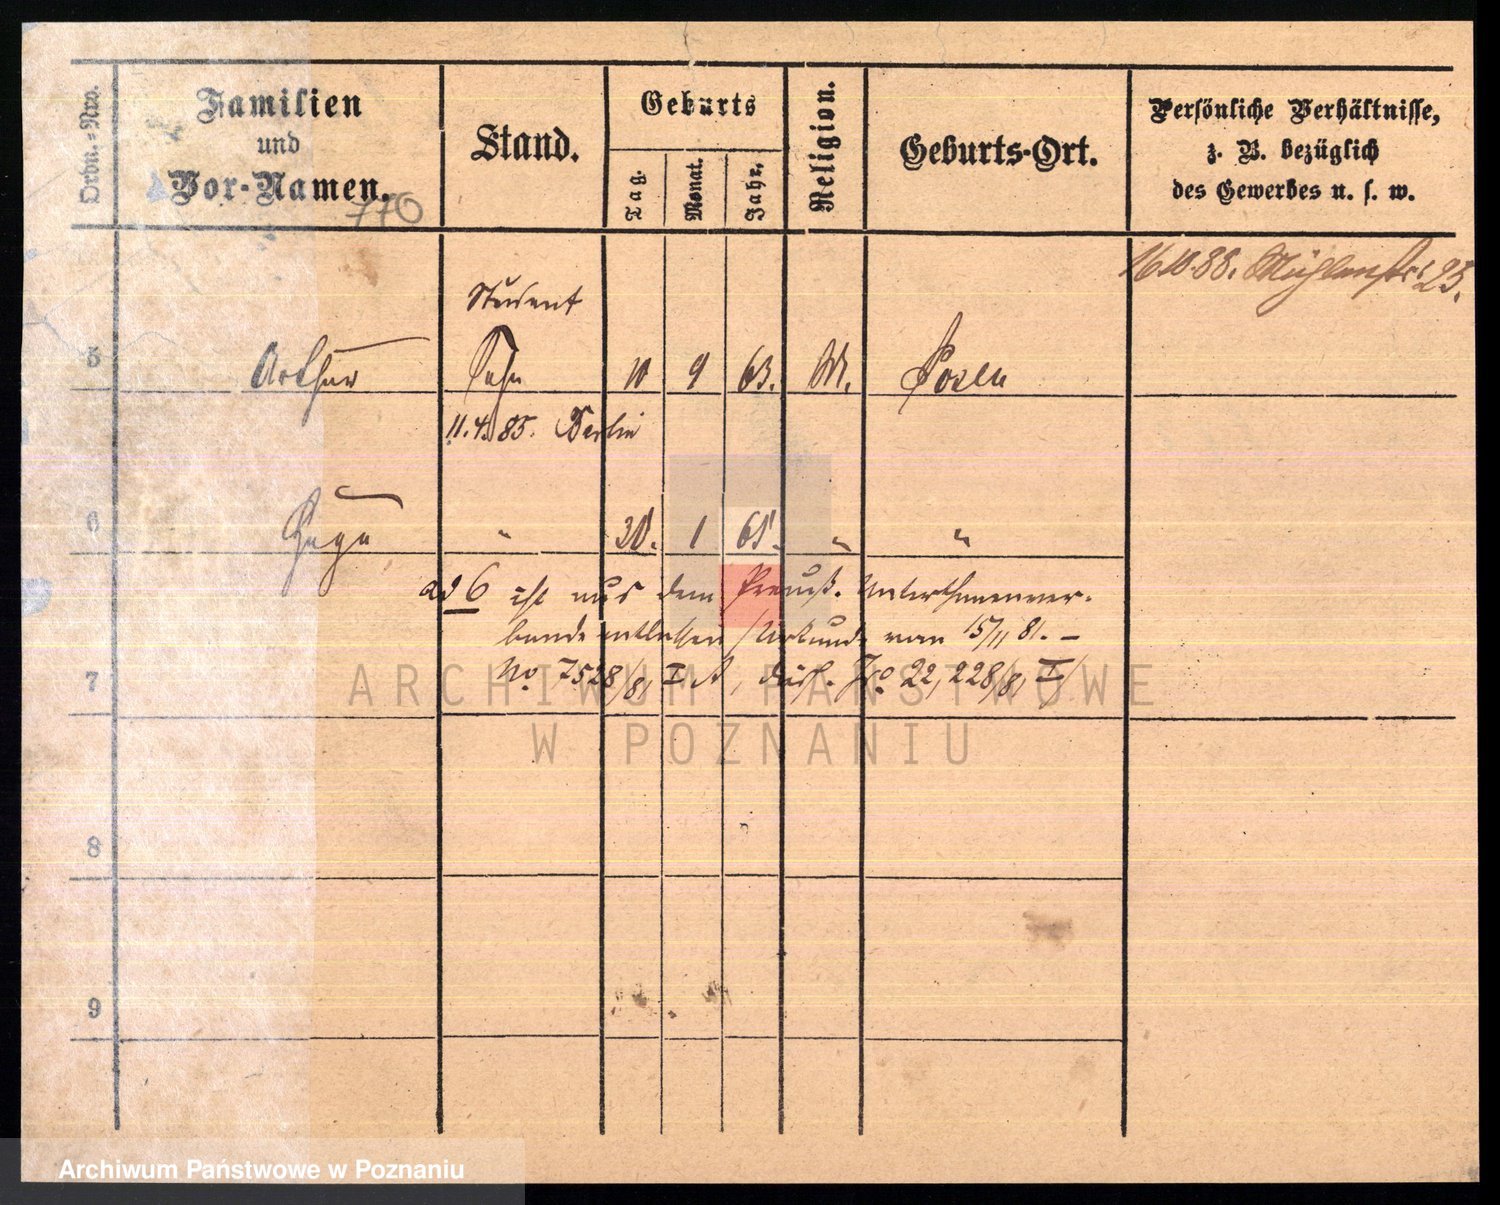 Ordn.-Nro.
Familien
und
Vor-Namen.
770
Stand.
Geburts
Tag.
Monat.
Jahr.
Religion.
Geburts-Ort.
Persönliche Verhältnisse,
z. B. bezüglich
des Gewerbes u. s. w.
16.10.88. Mühlenstr. 25.
Student
5 Arthur Sohn 10 9 63. M. Posen
11.4.85. Berlin
6 Hugo " 30. 1 65. " "
ad 6 ist aus dem Preuß. Unterthanenver-
bande entlassen /Urkunde vom 15/11 81. -
No. 7528/81 I A, 22,228/81 I/
7
8
9
ARCHIWUM PAŃSTWOWE
W POZNANIU
Archiwum Państwowe w Poznaniu